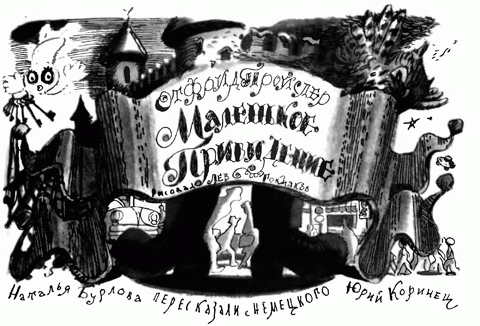 Отфрид Пройслер
Маленькое
Привидение
рисовал Лев Токмаков
Наталья Бурлова пересказали с немецкого Юрий Коринец